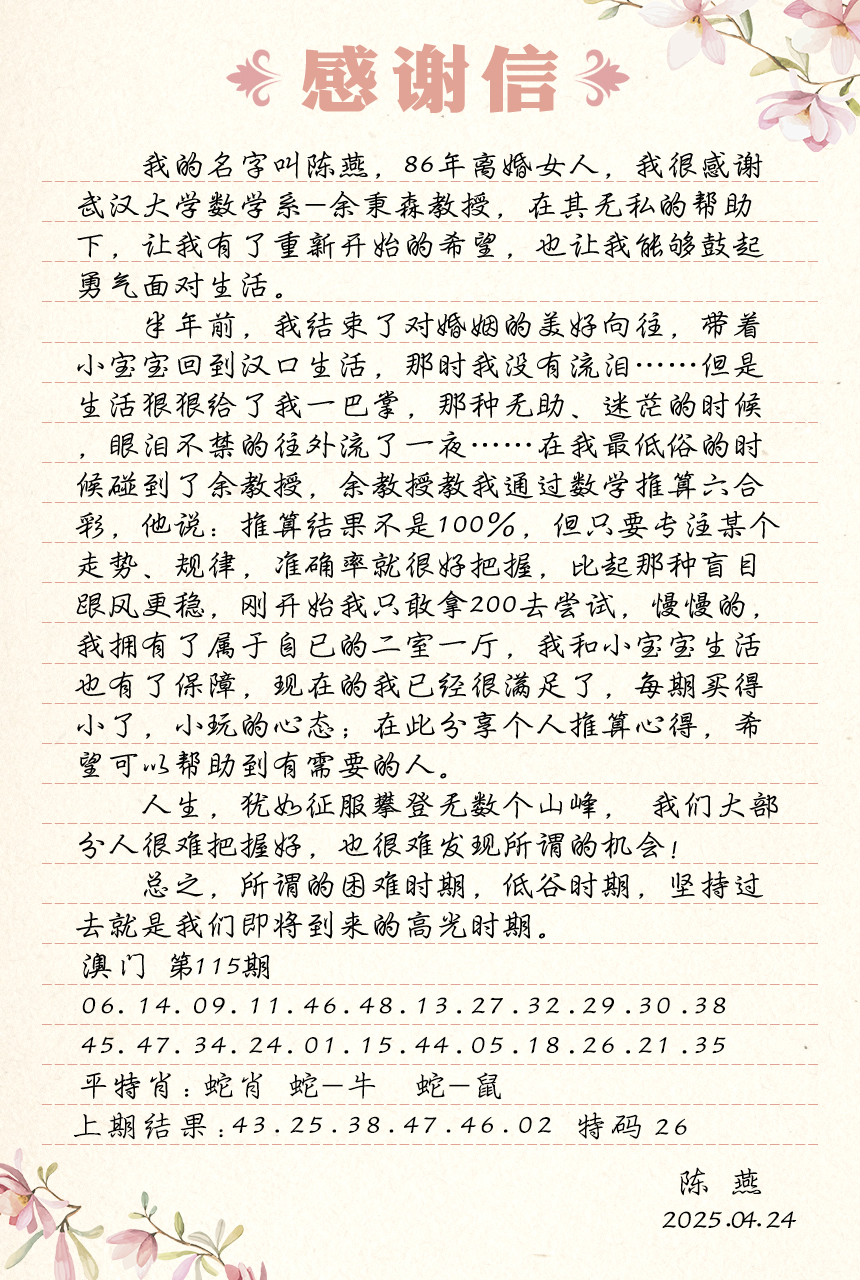 感谢信
我的名字叫陈燕，86年离婚女人，我很感谢
武汉大学数学系—余秉森教授，在其无私的帮助
下，让我有了重新开始的希望，也让我能够鼓起
勇气面对生活。
半年前，我结束了对婚姻的美好向往，带着
小宝宝回到汉口生活，那时我没有流泪……但是
生活狠狠给了我一巴掌，那种无助、迷茫的时候
，眼泪不禁的往外流了一夜……在我最低俗的时
候碰到了余教授，余教授教我通过数学推算六合
彩，他说：推算结果不是100%，但只要专注某个
走势、规律，准确率就很好把握，比起那种盲目
跟风更稳，刚开始我只敢拿200去尝试，慢慢的，
我拥有了属于自已的二室一厅，我和小宝宝生活
也有了保障，现在的我已经很满足了，每期买得
小了，小玩的心态；在此分享个人推算心得，希
望可以帮助到有需要的人。
人生，犹如征服攀登无数个山峰， 我们大部
分人很难把握好，也很难发现所谓的机会！
总之，所谓的困难时期，低谷时期，坚持过
去就是我们即将到来的高光时期。
澳门 第115期
06.14.09.11.46.48.13.27.32.29.30.38
45.47.34.24.01.15.44.05.18.26.21.35
平特肖：蛇肖 蛇—牛 蛇—鼠
上期结果：43.25.38.47.46.02 特码 26
陈 燕
2025.04.24